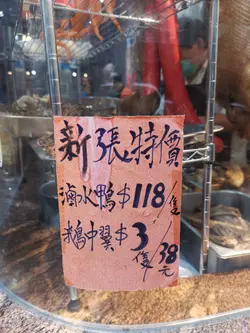 新張特價
滷水鴨$118/隻
鵝中翼$3隻/38元